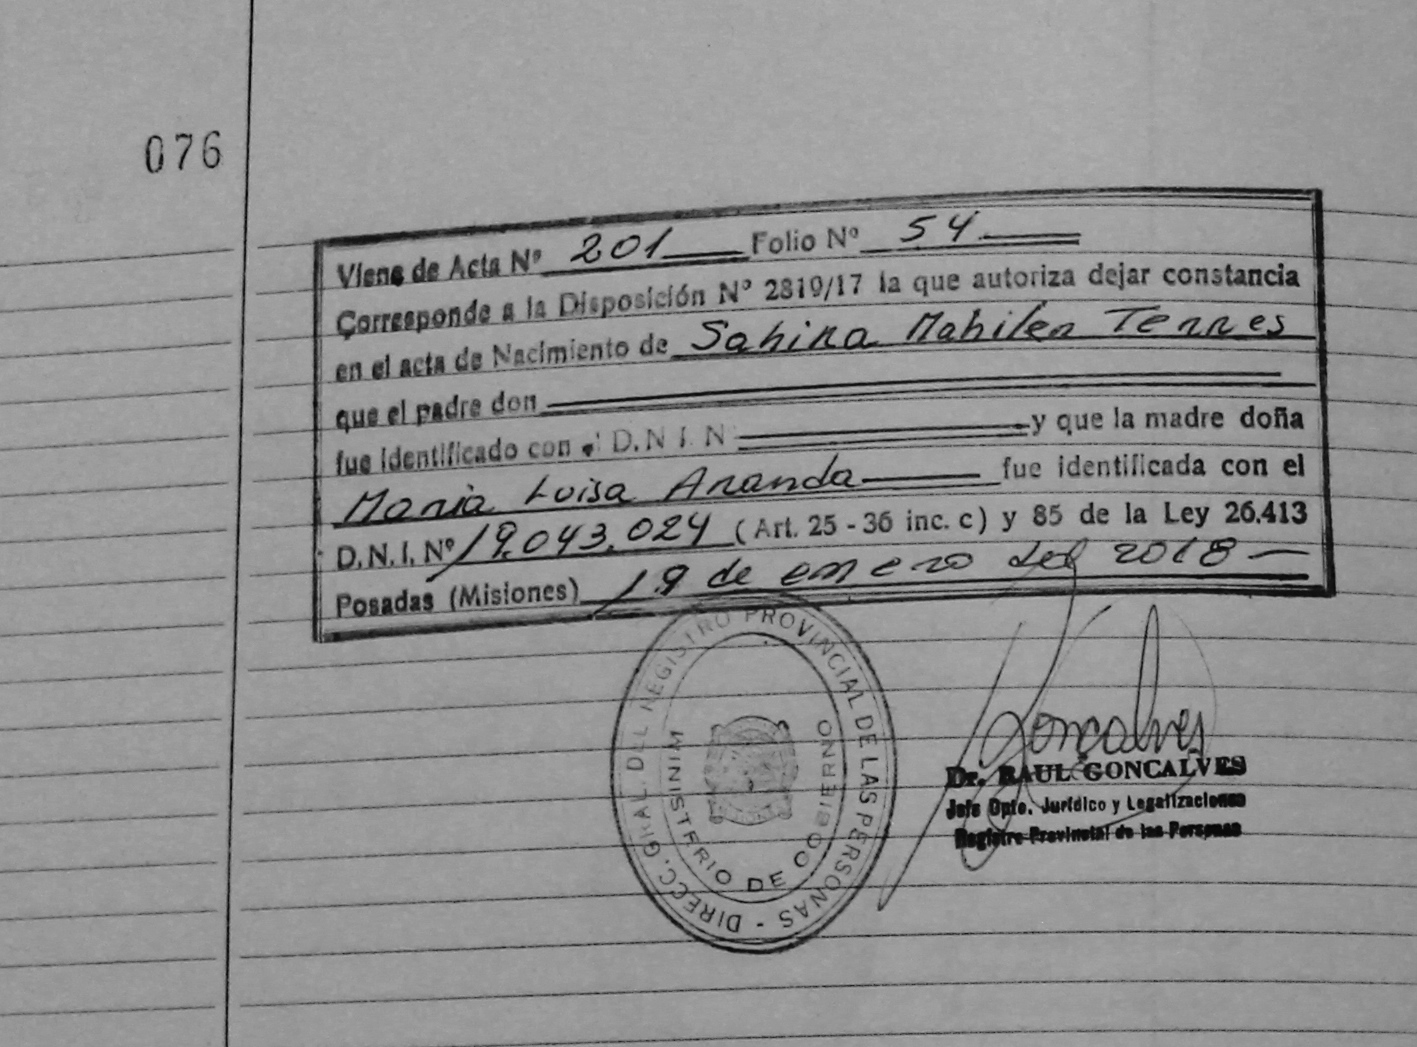 076
Viene de Acta Nº 201 Folio Nº 54
Corresponde a la Disposición Nº 2819/17 la que autoriza dejar constancia
en el acta de Nacimiento de Sahira Mahilen Terres
que el padre don
fue identificado con el D.N.I. N y que la madre doña
Maria Luisa Aranda fue identificada con el
D.N.I. Nº 19.043.024 (Art. 25 - 36 inc. c) y 85 de la Ley 26.413
Posadas (Misiones) 19 de enero del 2018
DIRECC. GRAL. DEL REGISTRO PROVINCIAL DE LAS PERSONAS -
MINISTERIO DE GOBIERNO
Gonçalves
Dr. RAUL GONCALVES
Jefe Dpto. Jurídico y Legalizaciones
Registro Provincial de las Personas